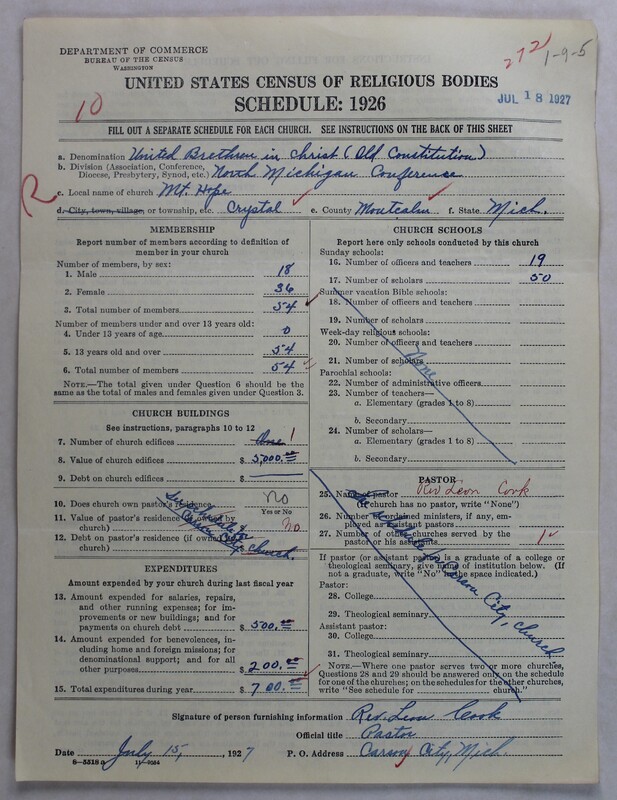 DEPARTMENT OF COMMERCE
BUREAU OF THE CENSUS
WASHINGTON
2721
1-9-5
UNITED STATES CENSUS OF RELIGIOUS BODIES
SCHEDULE: 1926
JUL 18 1927
10
FILL OUT A SEPARATE SCHEDULE FOR EACH CHURCH. SEE INSTRUCTIONS ON THE BACK OF THIS SHEET
a. Denomination United Brethren in Christ (Old Constitution)
b. Division (Association, Conference, Diocese, Presbytery, Synod, etc.) North Michigan Conference
R
c. Local name of church Mt. Hope
d. City, town, village, or township, etc. Crystal e. County Montcalm f. State Mich.
MEMBERSHIP
Report number of members according to definition of member in your church
Number of members, by sex:
1. Male 18
2. Female 36
3. Total number of members 54
Number of members under and over 13 years old:
4. Under 13 years of age 0
5. 13 years old and over 54
6. Total number of members 54
NOTE.—The total given under Question 6 should be the same as the total of males and females given under Question 3.
CHURCH BUILDINGS
See instructions, paragraphs 10 to 12
7. Number of church edifices One 1
8. Value of church edifices $ 5,000.00
9. Debt on church edifices $
10. Does church own pastor's residence No
Yes or No
11. Value of pastor's residence (if owned by church) No
12. Debt on pastor's residence (if owned by church) $
Carson City church.
EXPENDITURES
Amount expended by your church during last fiscal year
13. Amount expended for salaries, repairs, and other running expenses; for improvements or new buildings; and for payments on church debt $ 500.00
14. Amount expended for benevolences, including home and foreign missions; for denominational support; and for all other purposes $ 200.00
15. Total expenditures during year $ 700.00
CHURCH SCHOOLS
Report here only schools conducted by this church
Sunday schools:
16. Number of officers and teachers 19
17. Number of scholars 50
Summer vacation Bible schools:
18. Number of officers and teachers
19. Number of scholars
Week-day religious schools:
20. Number of officers and teachers
21. Number of scholars
None
Parochial schools:
22. Number of administrative officers
23. Number of teachers—
a. Elementary (grades 1 to 8)
b. Secondary
24. Number of scholars—
a. Elementary (grades 1 to 8)
b. Secondary
PASTOR
25. Name of pastor Rev Leon Cook
(If church has no pastor, write "None")
26. Number of ordained ministers, if any, employed as assistant pastors
27. Number of other churches served by the pastor or his assistants 1
See schedule Carson City, church
If pastor (or assistant pastor) is a graduate of a college or theological seminary, give name of institution below. (If not a graduate, write "No" in the space indicated.)
Pastor:
28. College
29. Theological seminary
Assistant pastor:
30. College
31. Theological seminary
NOTE.—Where one pastor serves two or more churches, Questions 28 and 29 should be answered only on the schedule for one of the churches; on the schedules for the other churches, write "See schedule for church."
Signature of person furnishing information Rev. Leon Cook
Official title Pastor
Date July 15, 1927 P. O. Address Carson City, Mich.